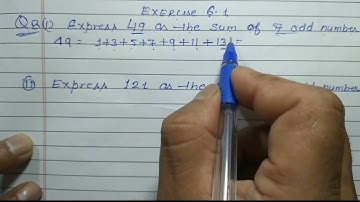 Exercise 6.1
Q8(i) Express 49 as the sum of 7 odd number
49 = 1+3+5+7+9+11+13
(ii) Express 121 as the odd number